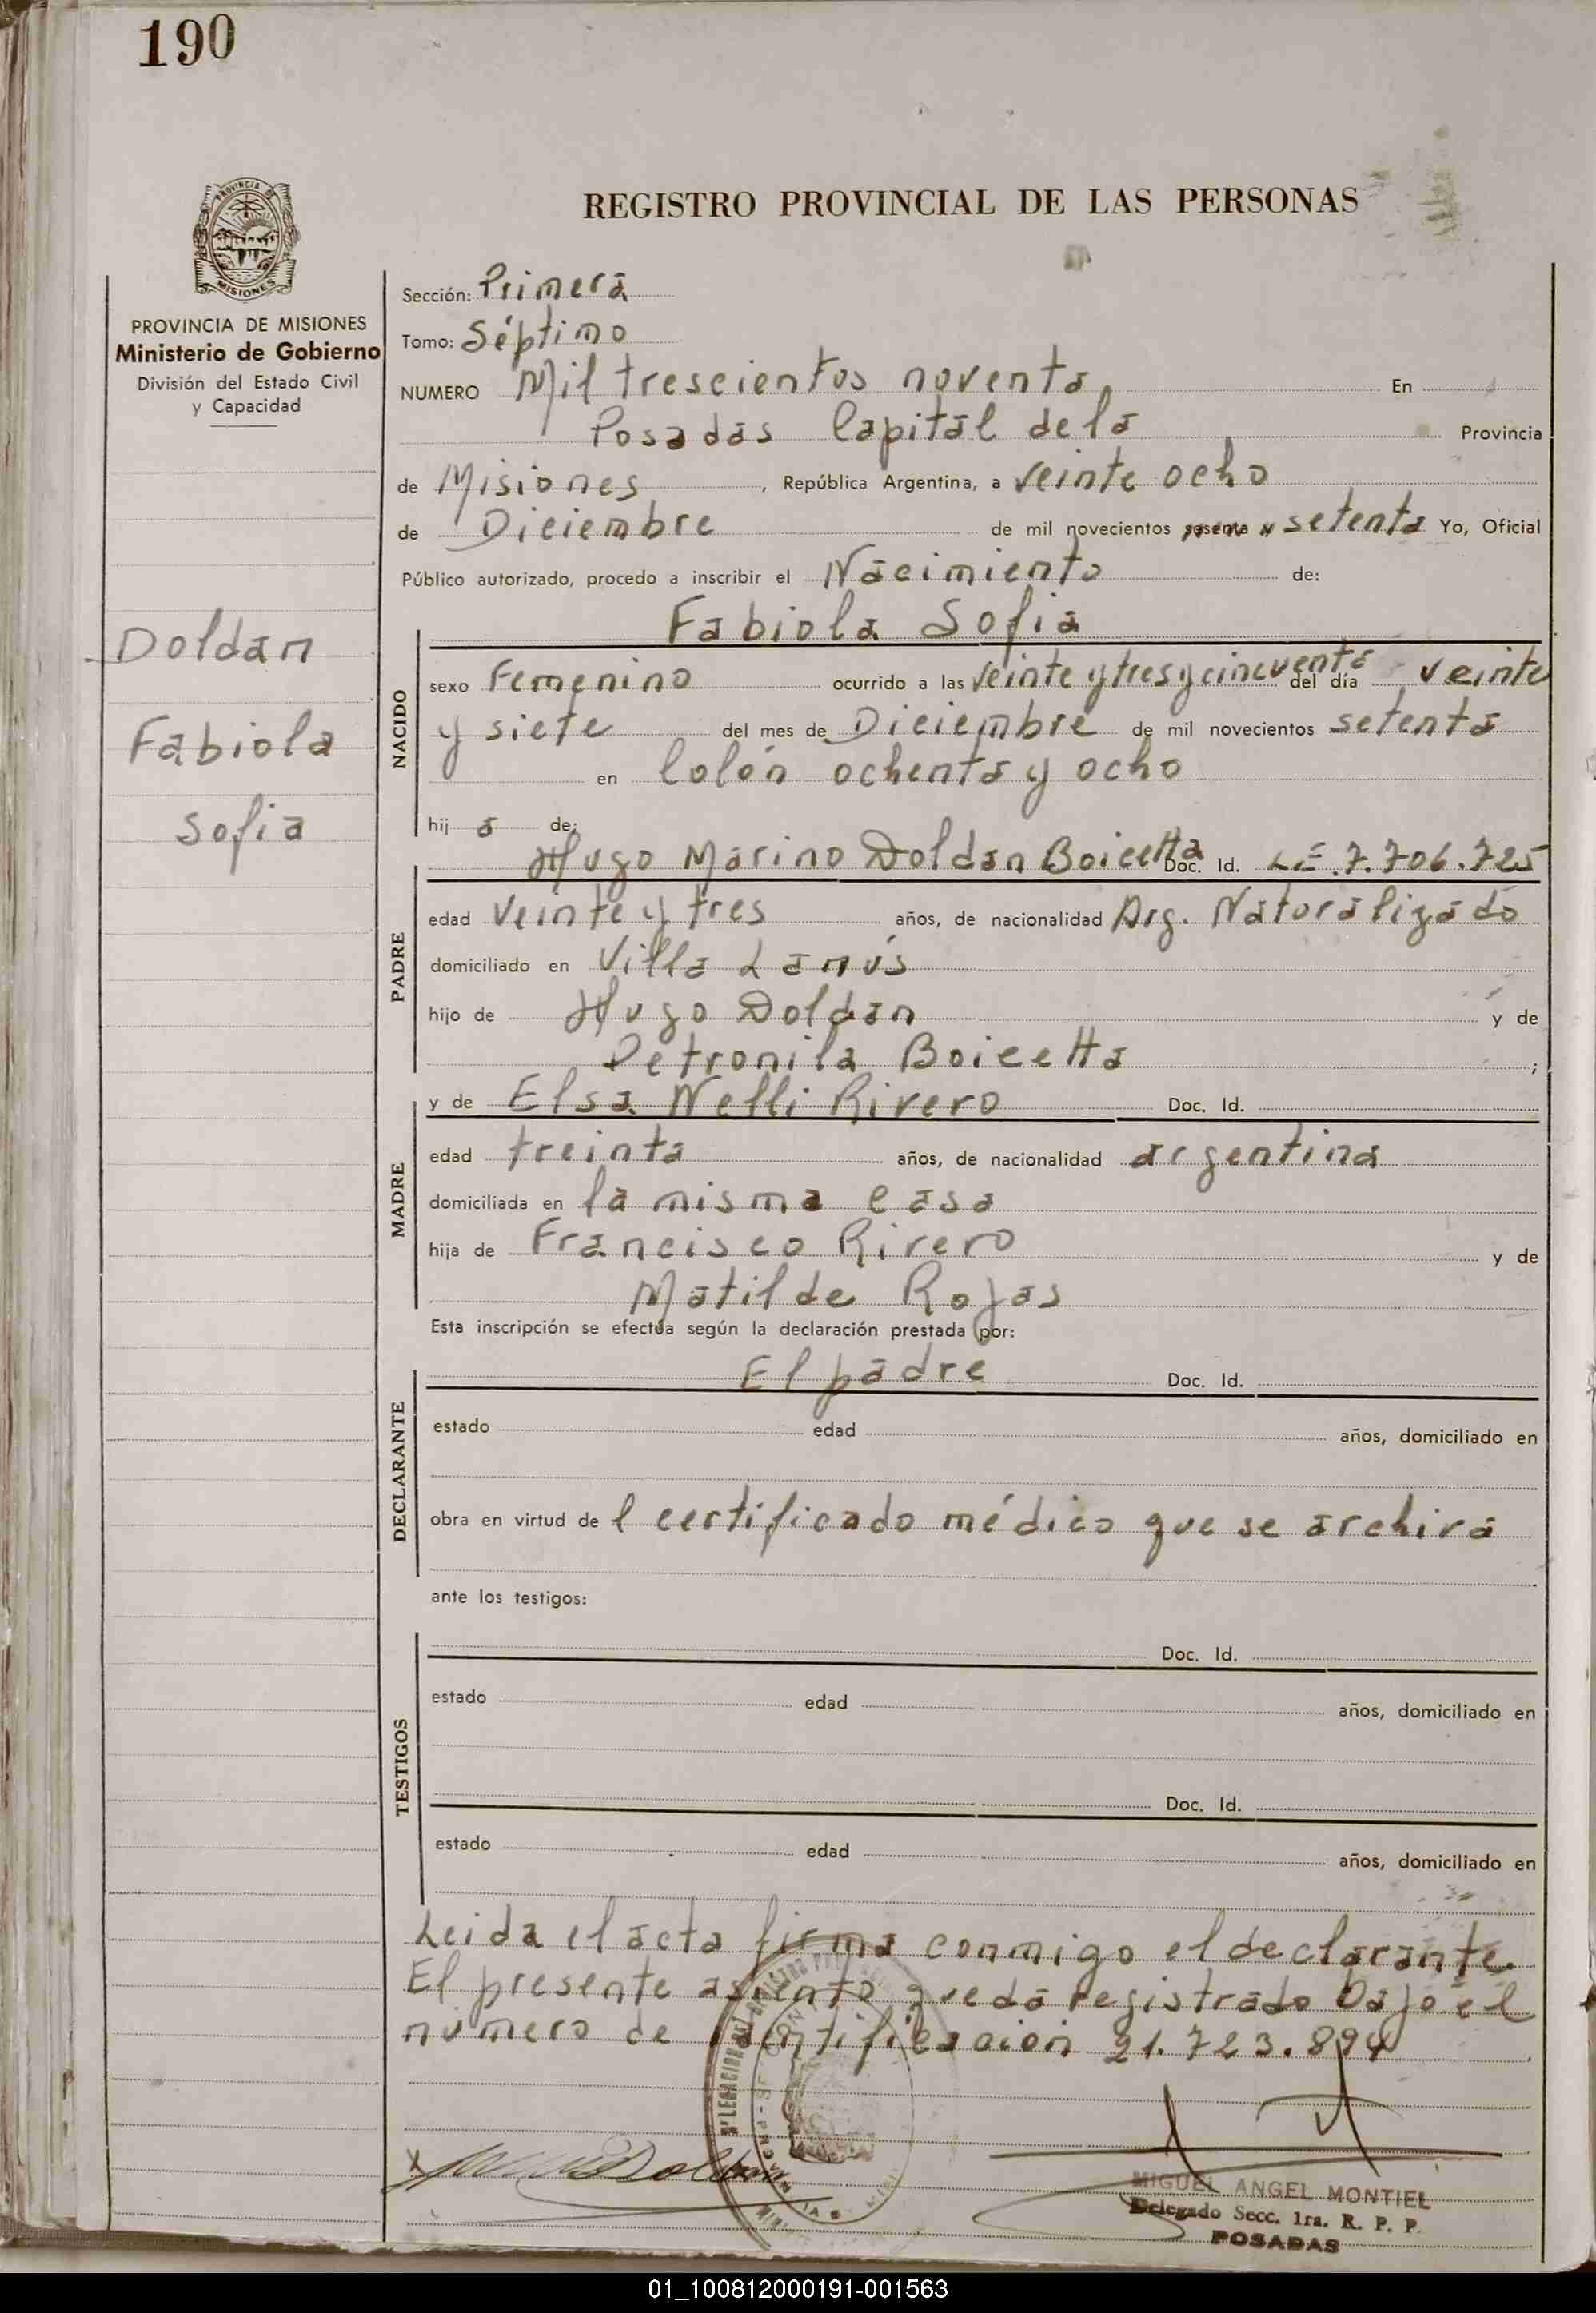 190
PROVINCIA DE
MISIONES
REGISTRO PROVINCIAL DE LAS PERSONAS
PROVINCIA DE MISIONES
Ministerio de Gobierno
División del Estado Civil
y Capacidad
Doldan
Fabiola
Sofia
Sección: Primera
Tomo: Séptimo
NUMERO Mil trescientos noventa En
Posadas Capital de la Provincia
de Misiones, República Argentina, a veinte ocho
de Diciembre de mil novecientos sesenta y setenta Yo, Oficial
Público autorizado, procedo a inscribir el Nacimiento de:
Fabiola Sofia
NACIDO
sexo Femenino ocurrido a las veinte y tres y cincuenta del día veinte
y siete del mes de Diciembre de mil novecientos setenta
en Colón ochenta y ocho
hij a de:
Hugo Marino Doldan Boicetta Doc. Id. LE.7.706.725
PADRE
edad veinte y tres años, de nacionalidad Arg. Naturalizado
domiciliado en Villa Lanús
hijo de Hugo Doldan y de
Petronila Boicetta ;
y de Elsa Nelli Rivero Doc. Id.
MADRE
edad treinta años, de nacionalidad argentina
domiciliada en la misma casa
hija de Francisco Rivero y de
Matilde Rojas
Esta inscripción se efectúa según la declaración prestada por:
El padre Doc. Id.
DECLARANTE
estado edad años, domiciliado en
obra en virtud de l certificado médico que se archiva
ante los testigos:
Doc. Id.
TESTIGOS
estado edad años, domiciliado en
Doc. Id.
estado edad años, domiciliado en
Leida el acta firma conmigo el declarante.
El presente asiento queda registrado bajo el
número de identificación 21.723.894
x Doldan
MIGUEL ANGEL MONTIEL
Delegado Secc. 1ra. R. P. P.
POSADAS
01_100812000191-001563